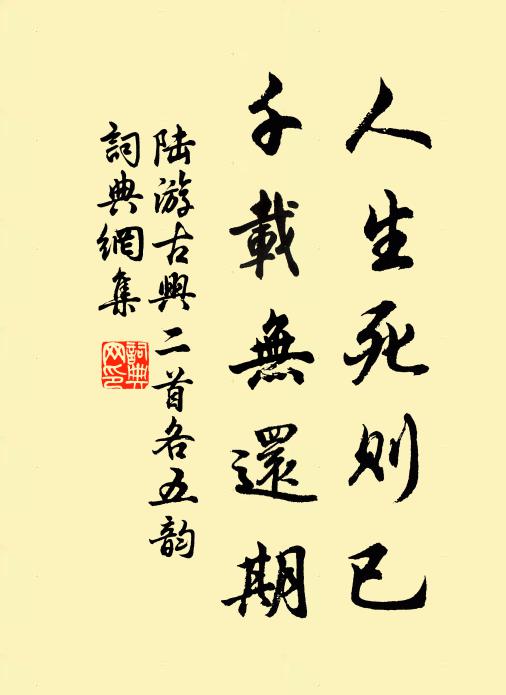 人生死則已
千載無還期
陸游古興二首各五韵
詞典網集
詞典網印